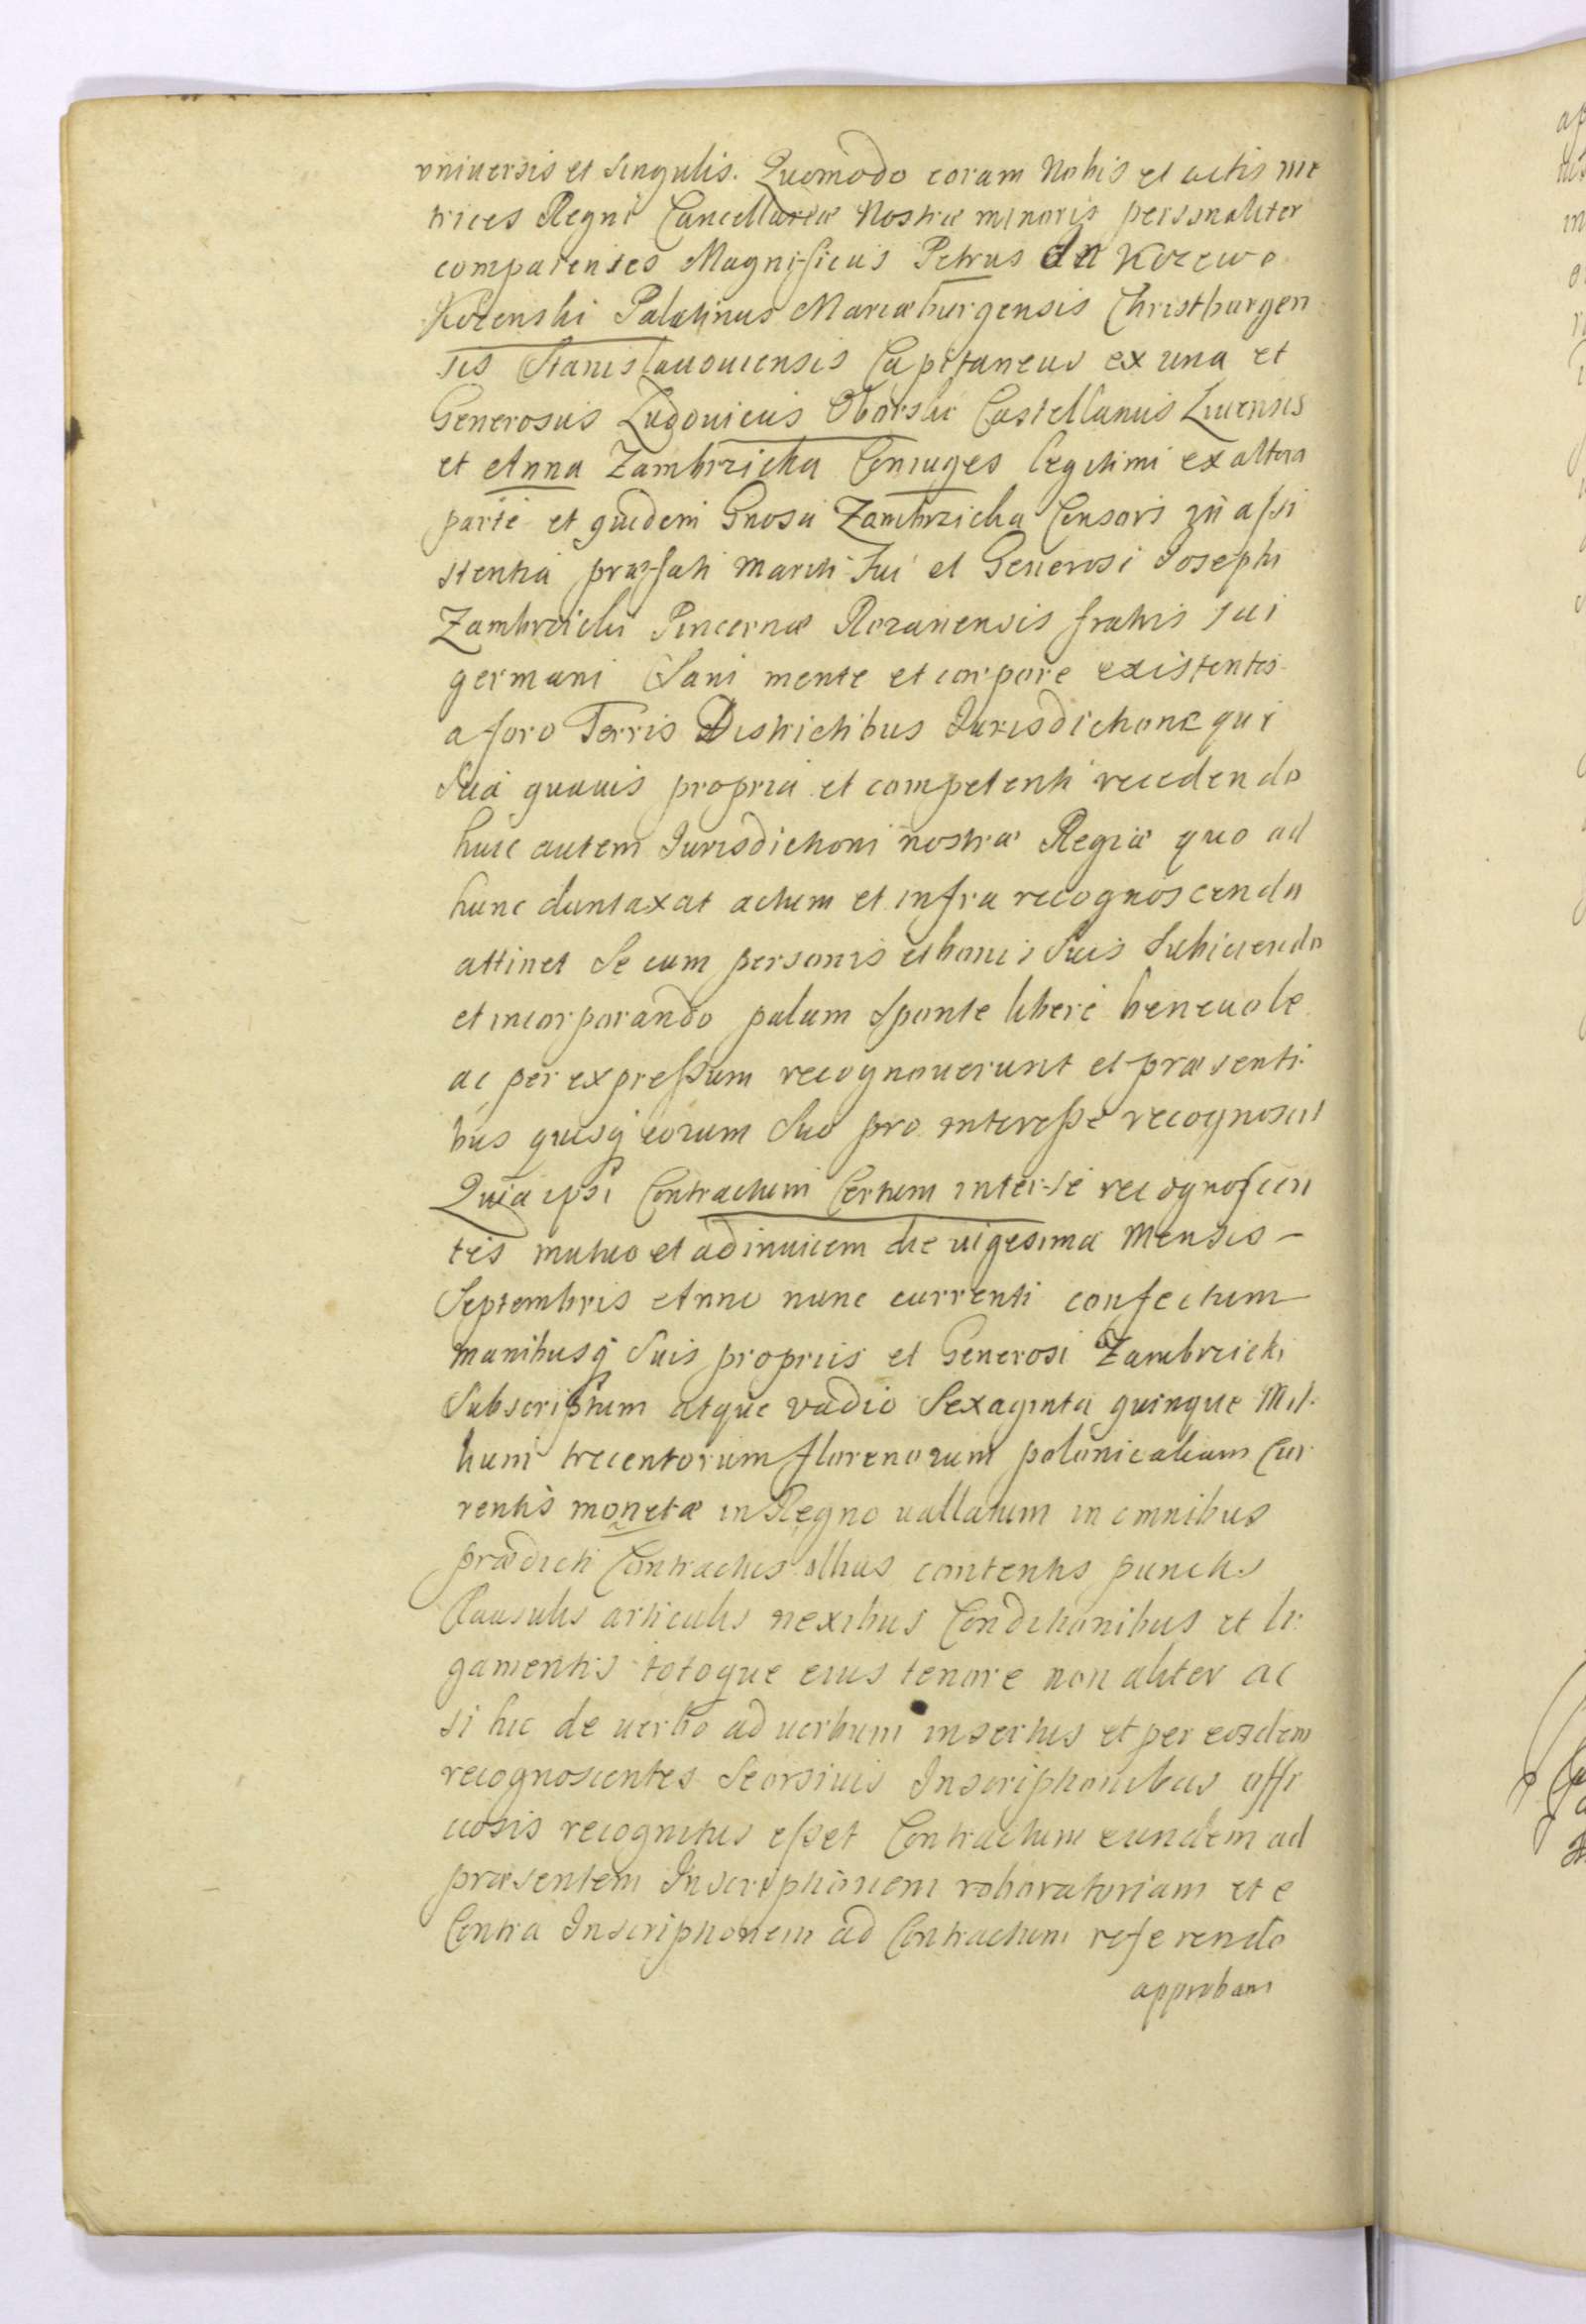 vniuersis et singulis. Quomodo coram Nobis et actis me
trices Regni Cancellariæ Nostræ minoris personaliter
comparentes Magnificus Petrus de Kczewo
Kczenski Palatinus Mariæburgensis Christburgen
sis Stanislauouiensis Capitaneus ex una et
Generosus Ludouicus Oborski Castellanus Liuensis
et Anna Zambrzicka Coniuges legitimi ex altera
parte et quidem Gnosa Zambrzicka Consors in assi
stentia præfati mariti sui et Generosi Josephi
Zambrzicki Pincernæ Rozanensis fratris sui
germani Sani mente et corpore existentes
a foro Terris Districtibus Jurisdictione qui
sua quauis propria et competenti recedendo
huic autem Jurisdictioni nostræ Regiæ quo ad
hunc duntaxat actum et infra recognoscenda
attinet se cum personis et bonis suis subiiciendo
et incorporando palam sponte libere beneuole
ac per expressum recognouerunt et præsenti
bus quisq eorum suo pro interesse recognoscit
Quia ipsi Contractum Certum inter se recognoscen
tes mutuo et adinuicem die uigesima Mensis –
Septembris Anno nunc currenti confectum
manibusq suis propriis et Generosi Zambrzicki
Subscriptum atque vadio Sexaginta quinque Mil
lium trecentorum florenorum polonicalium Cur
rentis monetæ in Regno uallatum in omnibus
prædicti Contractus illius contentis punctis
Clausulis articulis nexibus Conditionibus et li
gamentis totoque eius tenore non aliter ac
si hic de uerbo ad uerbum insertus et per eosdem
recognoscentes seorsiuis Inscriptionibus offi
ciosis recognitus esset Contractum eundem ad
præsentem Inscriptionem roboratoriam et e
Contra Inscriptionem ad Contractum referendo
approbant